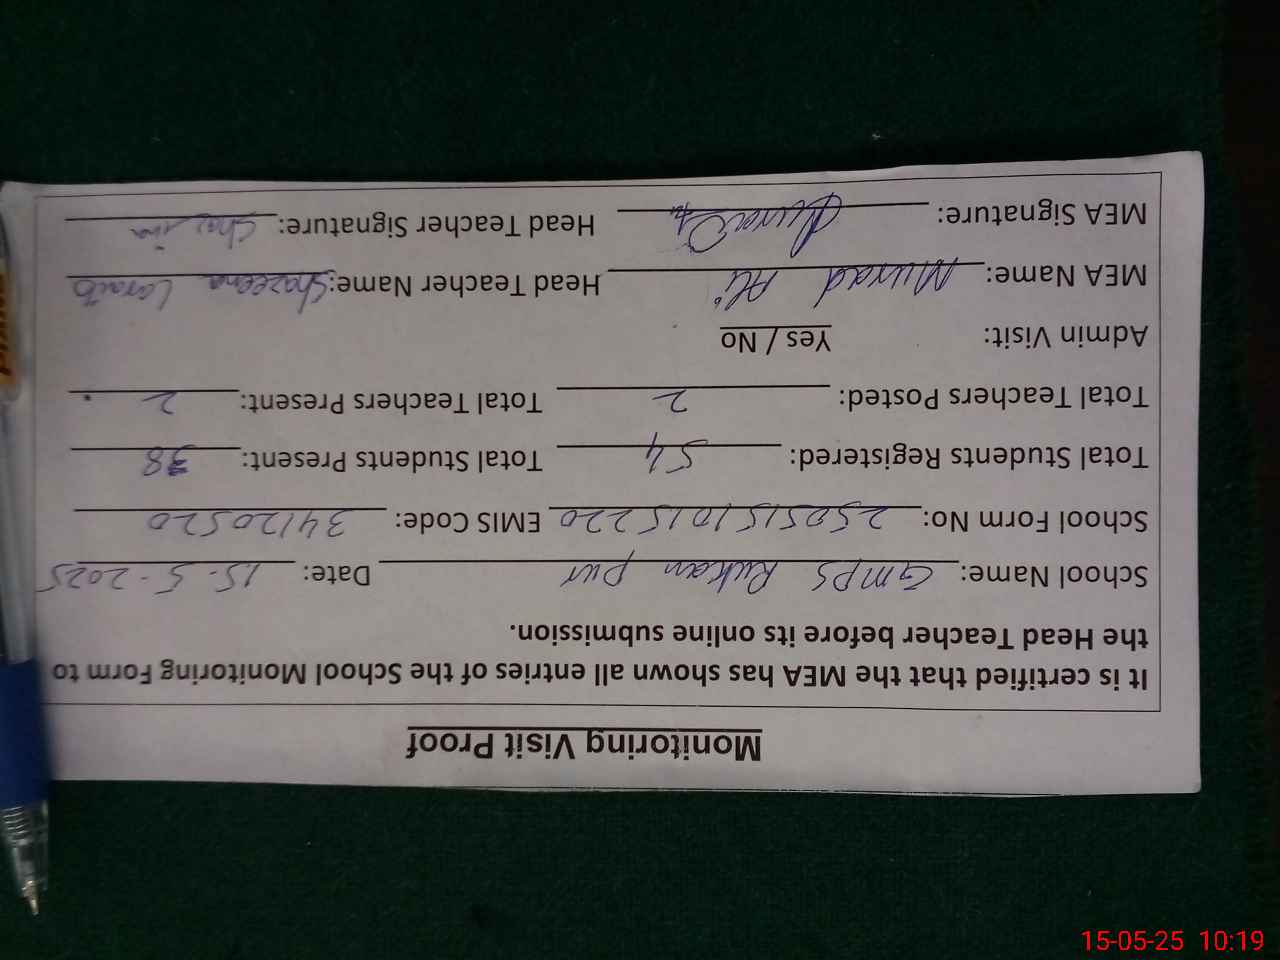 Monitoring Visit Proof
It is certified that the MEA has shown all entries of the School Monitoring Form to
the Head Teacher before its online submission.
School Name: GMPS Rukan pur Date: 15-5-2025
School Form No: 2505151015220 EMIS Code: 34120520
Total Students Registered: 54 Total Students Present: 38
Total Teachers Posted: 2 Total Teachers Present: 2
Admin Visit: Yes / No
MEA Name: Murad Ali Head Teacher Name: Shazeena
MEA Signature: Head Teacher Signature:
15-05-25 10:19